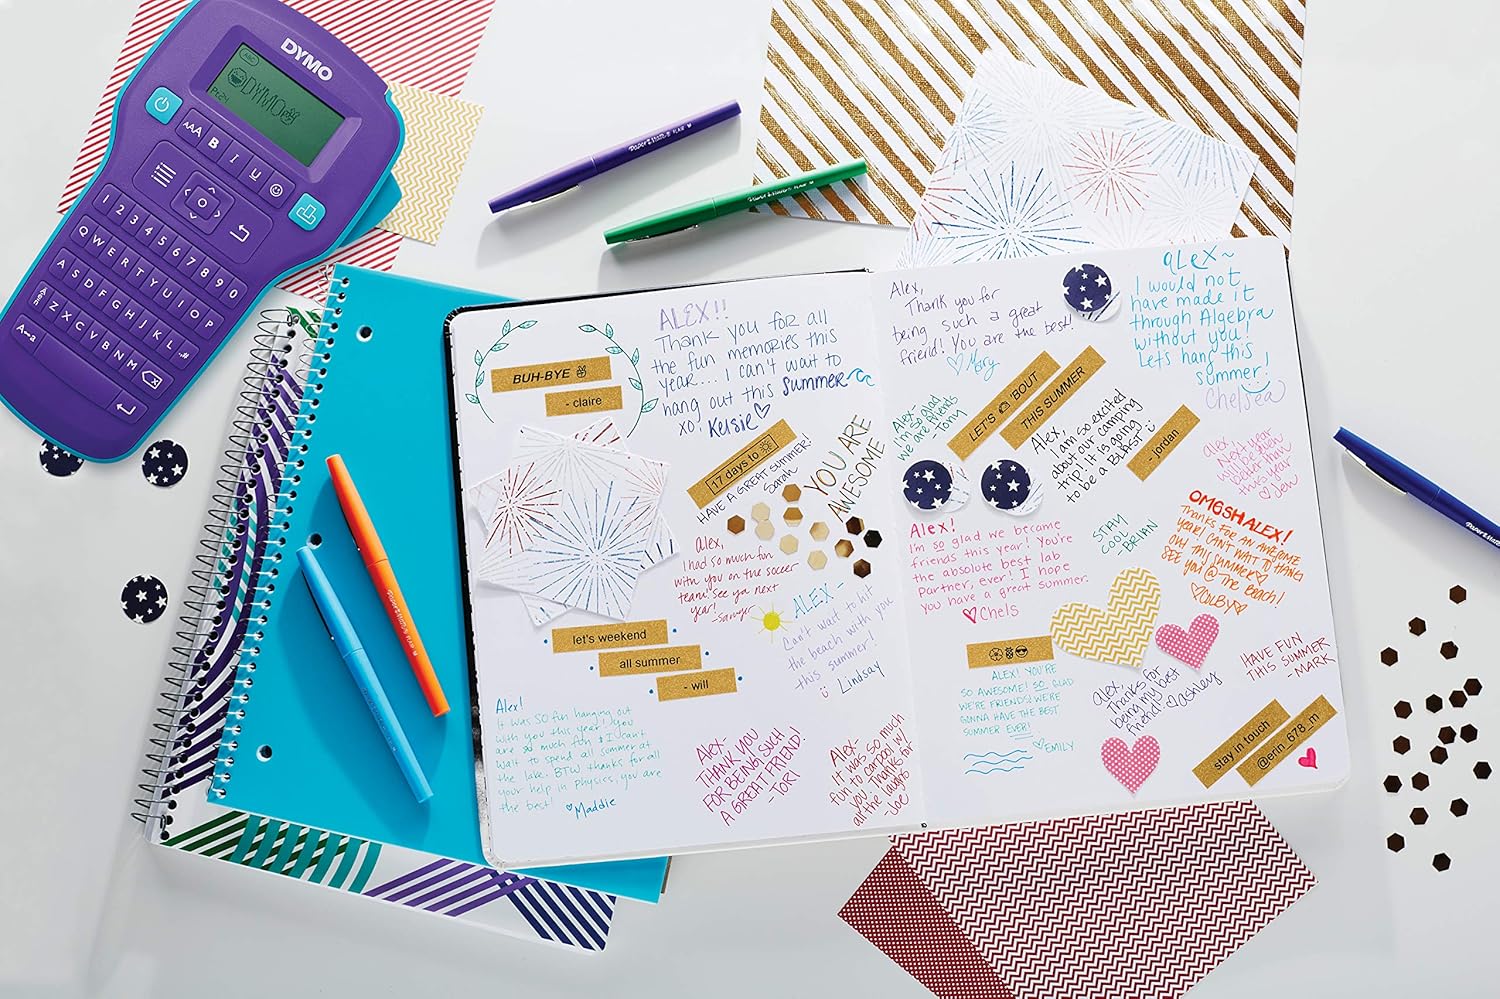 DYMO
ABC
DYMO
Pr24
AAA B I U
1 2 3 4 5 6 7 8 9 0
Q W E R T Y U I O P
A S D F G H J K L
Z X C V B N M
Paper Mate FLAIR
Paper Mate FLAIR
BUH-BYE ✌
- claire
ALEX!!
Thank you for all
the fun memories this
year.... I can't wait to
hang out this summer
xo! Kelsie♡
17 days to ☀
HAVE A GREAT SUMMER!
Sarah
YOU ARE
AWESOME
Alex,
I had so much fun
with you on the soccer
team! See ya next
year! -Sawyer
ALEX-
Can't wait to hit
the beach with you
this summer!
Lindsay
let's weekend
all summer
- will
Alex!
It was SO fun hanging out
with you this year! You
are so much fun & I can't
wait to spend all summer at
the lake. BTW thanks for all
your help in Physics, you are
the best! ♡Maddie
Alex-
THANK YOU
FOR BEING SUCH
A GREAT FRIEND!
-TORI
Alex-
It was so much
fun to carpool w/
you. Thanks for
all the laughs
-Joe
Alex,
Thank you for
being such a great
friend! You are the best!
♡Mary
ALEX~
I would not
have made it
through Algebra
without you!
Let's hang this
summer!
Chelsea
Alex-
I'm so glad
we are friends
-Tony
LET'S 'BOUT
THIS SUMMER
Alex,
I am so excited
about our camping
trip! It is going
to be a BLAST
- jordan
Alex
Next year
this year
♡ Jaw
Alex!
I'm so glad we became
friends this year! You're
the absolute best lab
partner, ever! I hope
you have a great summer.
♡Chels
STAY
COOL!
BRIAN
OMGSHALEX!
Thanks for an awesome
year! Can't wait to hang
out this summer♡
See you @ the beach!
♡COLBY♡
ALEX! YOU'RE
SO AWESOME! SO GLAD
WE'RE FRIENDS! WE'RE
GONNA HAVE THE BEST
SUMMER EVER!
♡EMILY
Alex,
Thanks for
being my best
friend! ♡Ashley
HAVE FUN
THIS SUMMER
-MARK
stay in touch
@erin_678_m